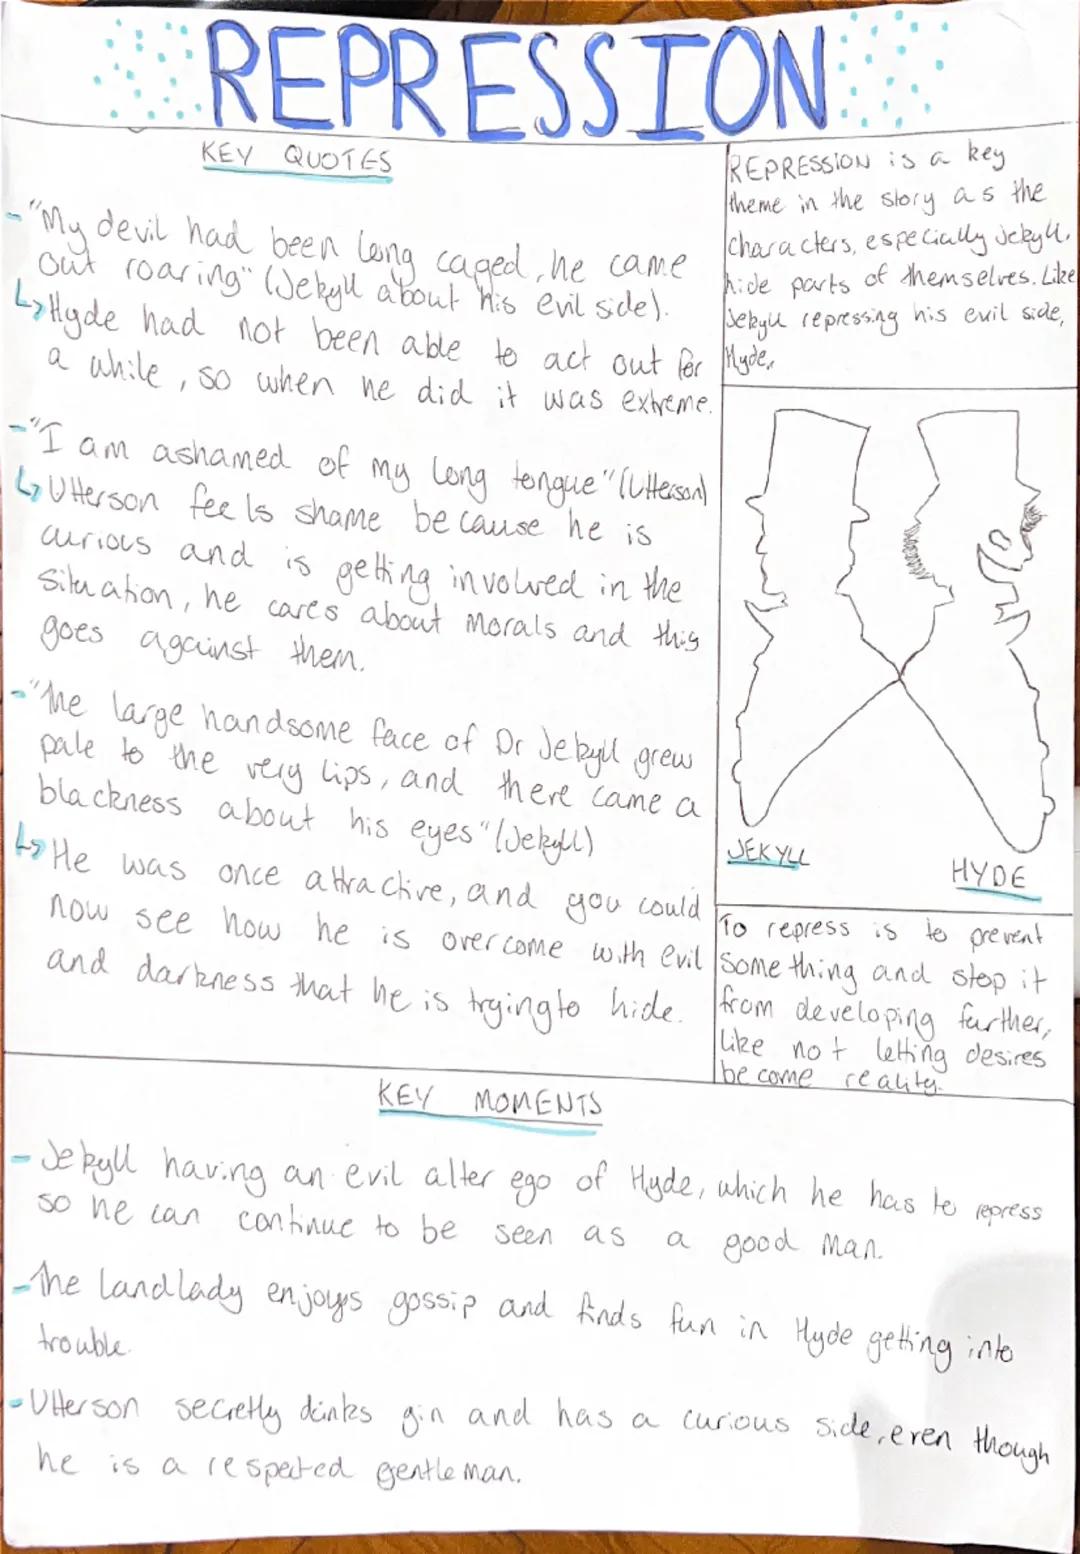 REPRESSION
KEY QUOTES
- "My devil had been long caged, he came
out roaring" (Jekyll about his evil side).
↳ Hyde had not been able to act out for
a while, so when he did it was extreme.
- "I am ashamed of my long tongue" (Utterson)
↳ Utterson feels shame because he is
curious and is getting involved in the
situation, he cares about morals and this
goes against them.
- "The large handsome face of Dr Jekyll grew
pale to the very lips, and there came a
blackness about his eyes" (Jekyll)
↳ He was once attractive, and you could
now see how he is overcome with evil
and darkness that he is trying to hide.
REPRESSION is a key
theme in the story as the
characters, especially Jekyll,
hide parts of themselves. Like
Jekyll repressing his evil side,
Hyde.
JEKYLL
HYDE
To repress is to prevent
something and stop it
from developing further,
like not letting desires
become reality.
KEY MOMENTS
- Jekyll having an evil alter ego of Hyde, which he has to repress
so he can continue to be seen as a good man.
- The landlady enjoys gossip and finds fun in Hyde getting into
trouble.
- Utterson secretly drinks gin and has a curious side, even though
he is a respected gentleman.